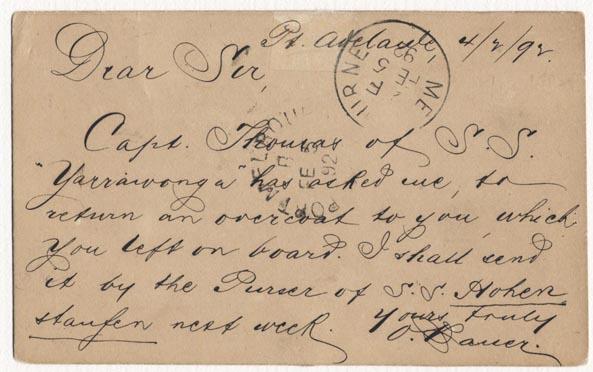 Pt. Adelaide, 4/2/92.
Dear Sir,
Capt. Thomas of S.S.
"Yarrawonga" has asked me, to
return an overcoat to you, which
you left on board. I shall send
it by the Purser of S.S. Hohen
staufen next week. Yours truly
O. Bauer.